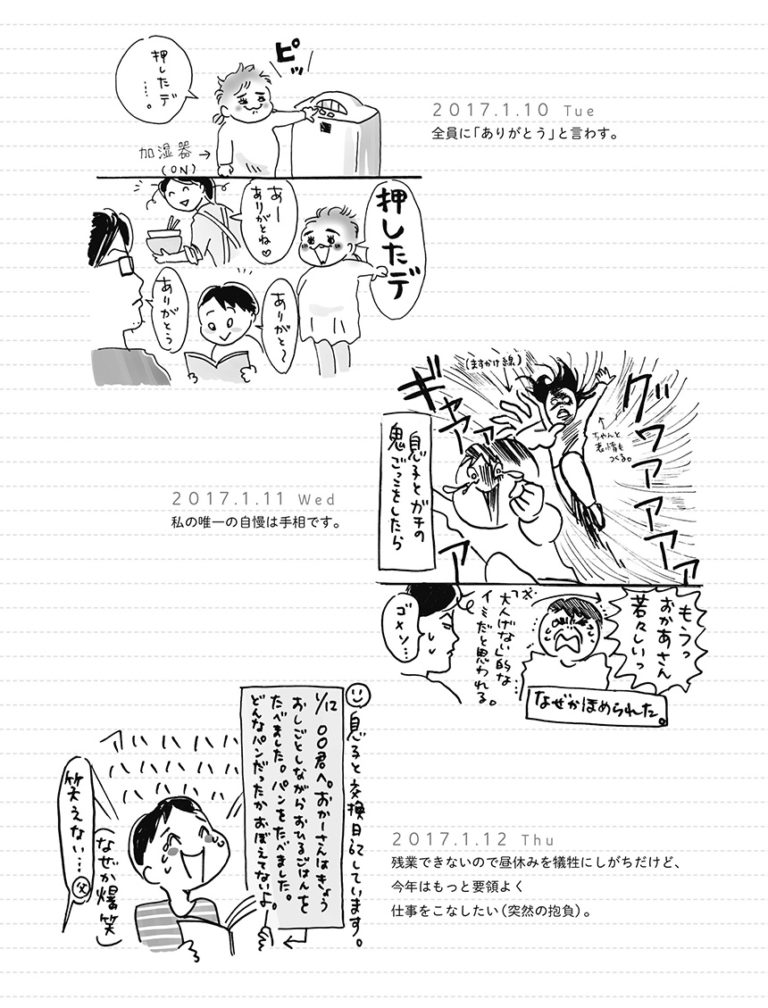 2017.1.10 Tue
全員に「ありがとう」と言わす。
押したデ
……。
ピッ
加湿器→
(ON)
押したデ
あー
ありがとね♡
ありがと〜
ありがとう
2017.1.11 Wed
私の唯一の自慢は手相です。
息子とガチの
鬼ごっこをしたら
(ますかけ線)
ギャアアアア
グワァァァァァ
←ちゃんと
表情も
つくる。
もうっ
おかあさん
若々しいっ
※大人げない的な
イミだと思われる。
ゴメン…
なぜかほめられた。
2017.1.12 Thu
残業できないので昼休みを犠牲にしがちだけど、
今年はもっと要領よく
仕事をこなしたい(突然の抱負)。
息子と交換日記しています。
1/12 ○○君へ。おかーさんはきょう
おしごとしながらおひるごはんを
たべました。パンをたべました。
どんなパンだったかおぼえてないよ。
ハハハハ
ハハハハ
ハハハハ
(なぜか爆笑)
笑えない…
父